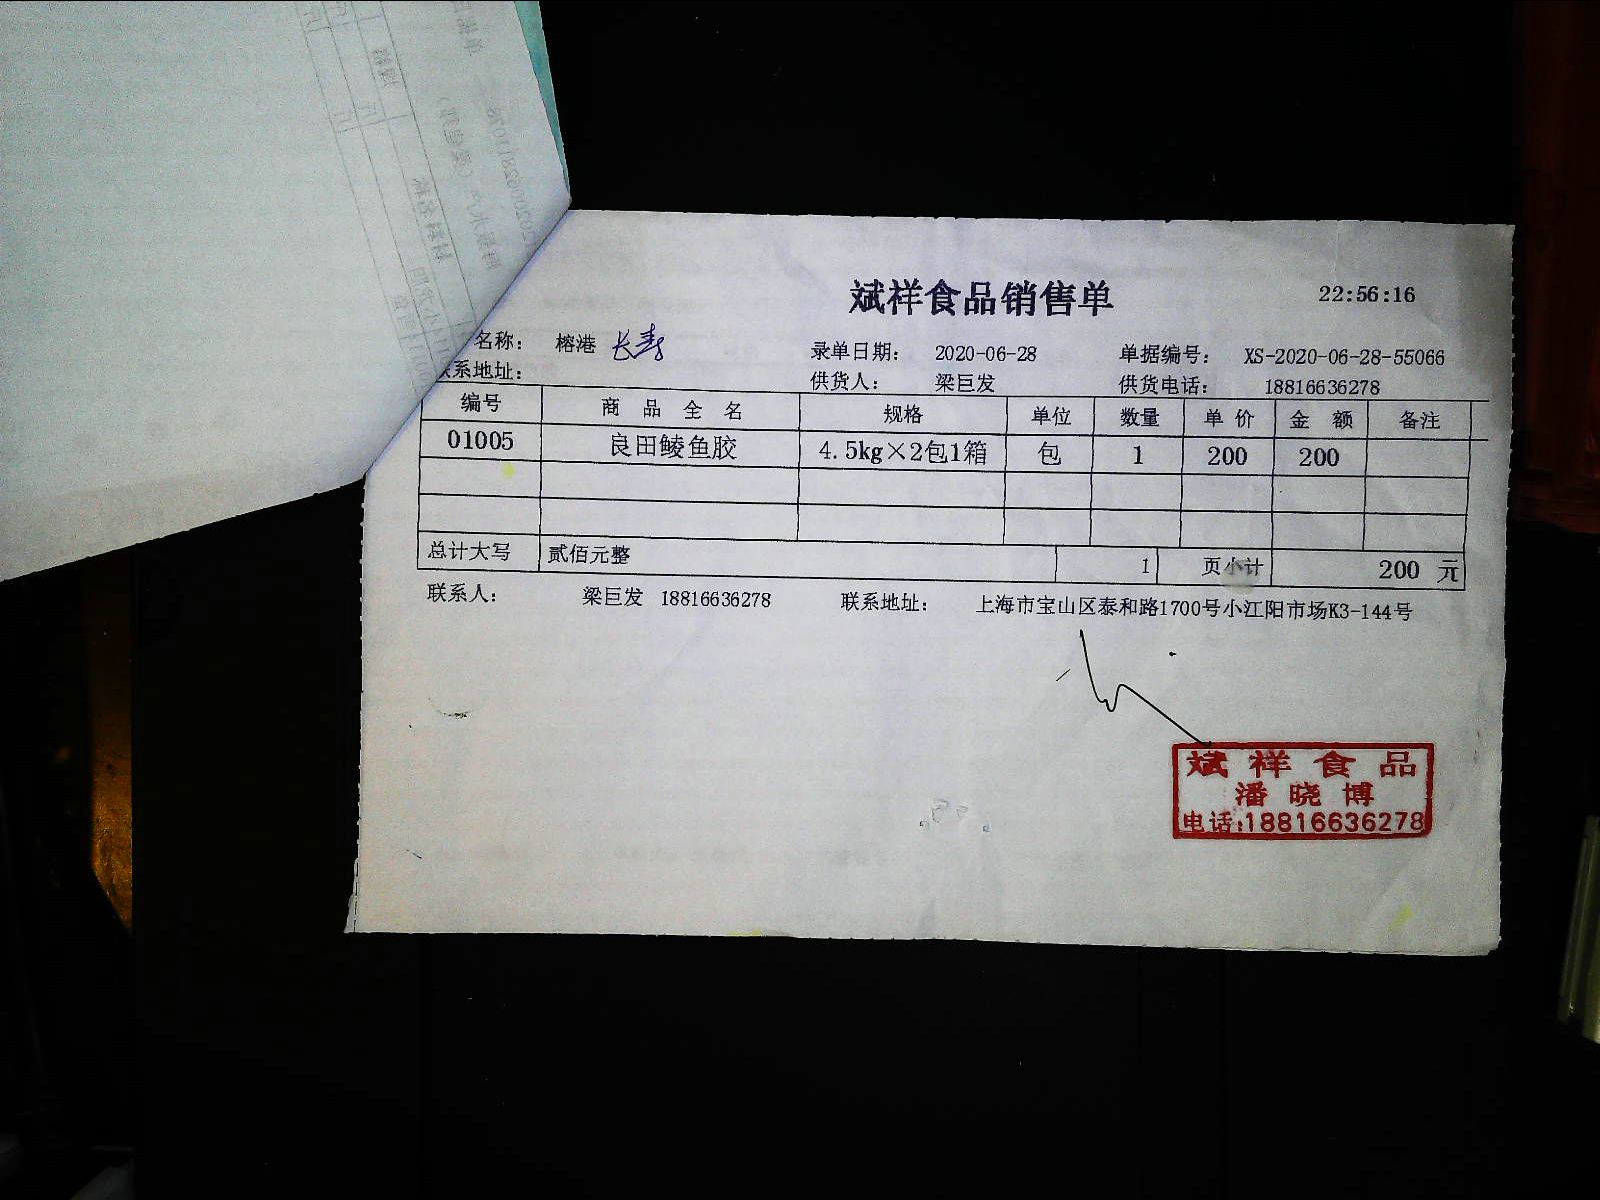 斌祥食品销售单 22:56:16
名称： 榕港 长寿 录单日期： 2020-06-28 单据编号： XS-2020-06-28-55066
系地址： 供货人： 梁巨发 供货电话： 18816636278
编号 商品全名 规格 单位 数量 单价 金额 备注
01005 良田鲮鱼胶 4.5kg×2包1箱 包 1 200 200
总计大写 贰佰元整 1 页小计 200 元
联系人： 梁巨发 18816636278 联系地址： 上海市宝山区泰和路1700号小江阳市场K3-144号
斌祥食品
潘晓博
电话:18816636278